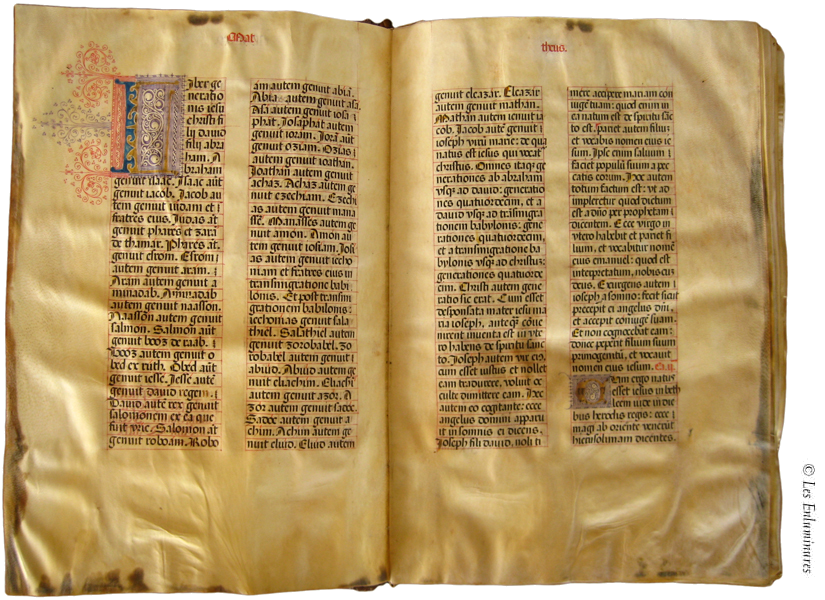 Mat
theus.
Liber ge
neratio
nis iesu
christi fi
ly dauid
filij abra
ham. A
braham
genuit isaac. Isaac aūt
genuit iacob. Jacob au
tem genuit iudam et
fratres eius. Judas aūt
genuit phares et zaram
de thamar. Phares aūt
genuit esrom. Esrom
autem genuit aram.
Aram autem genuit a
minadab. Aminadab
autem genuit naasson.
Naasson autem genuit
salmon. Salmon aūt
genuit booz de raab.
Booz autem genuit o
bed ex ruth. Obed aūt
genuit iesse. Jesse autē
genuit dauid regem.
Dauid autē rex genuit
salomonem ex ea que
fuit vrie. Salomon aūt
genuit roboam. Robo
am autem genuit abiā.
Abia autem genuit asa.
Asa autem genuit iosa
phat. Josaphat autem
genuit ioram. Jorā aūt
genuit oziam. Ozias
autem genuit ioathan.
Joathan autem genuit
achaz. Achaz autem ge
nuit ezechiam. Ezechi
as autem genuit mana
ssē. Manasses autem ge
nuit amon. Amon au
tem genuit iosiam. Josi
as autem genuit iecho
niam et fratres eius in
transmigratione babi
lonis. Et post transmi
grationem babilonis:
iechonias genuit sala
thiel. Salathiel autem
genuit zorobabel. Zo
robabel autem genuit
abiud. Abiud autem ge
nuit eliachim. Eliachī
autem genuit azor. A
zor autem genuit sadoc.
Sadoc autem genuit a
chim. Achim autem ge
nuit eliud. Eliud autem
genuit eleazar. Eleazar
autem genuit mathan.
Mathan autem genuit ia
cob. Jacob autē genuit
ioseph virū marie: de qua
natus est iesus qui vocat
christus. Omnes itaqꝫ ge
nerationes ab abraham
vsqꝫ ad dauid: generatio
nes quatuordecim, et a
dauid vsqꝫ ad trāsmigra
tionem babylonis: gene
rationes quatuordecim,
et a transmigratione ba
bylonis vsqꝫ ad christuꝫ:
generationes quatuorde
cim. Christi autem gene
ratio sic erat. Cum esset
desponsata mater iesu ma
ria ioseph, anteqꝫ cōue
nirent inuenta est in vte
ro habens de spiritu sanc
to. Joseph autem vir eius,
cum esset iustus et nollet
eam traducere, voluit oc
culte dimittere eam. Hec
autem eo cogitante: ecce
angelus domini apparu
it in somnis ei dicens.
Joseph fili dauid, noli ti
mere accipere mariam con
iugē tuam: quod enim in
ea natum est de spiritu sāc
to est. Pariet autem filiuꝫ
et vocabis nomen eius ie
sum. Ipse enim saluum
faciet populū suum a pec
catis eorum. Hoc autem
totum factum est: vt ad
impleretur quod dictum
est a dno per prophetam
dicentem. Ecce virgo in
vtero habebit et pariet fi
lium, et vocabitur nomē
eius emanuel: quod est
interpretatum, nobiscuꝫ
deus. Exurgens autem
ioseph a somno: fecit sicut
precepit ei angelus dni,
et accepit coniugē suam.
Et non cognoscebat eam:
donec peperit filium suum
primogenitū, et vocauit
nomen eius iesum. Ca. ij.
Cum ergo natus
esset iesus in beth
leem iude in die
bus herodis regis: ecce
magi ab oriente venerūt
hierosolimam dicentes.
© Les Enluminures